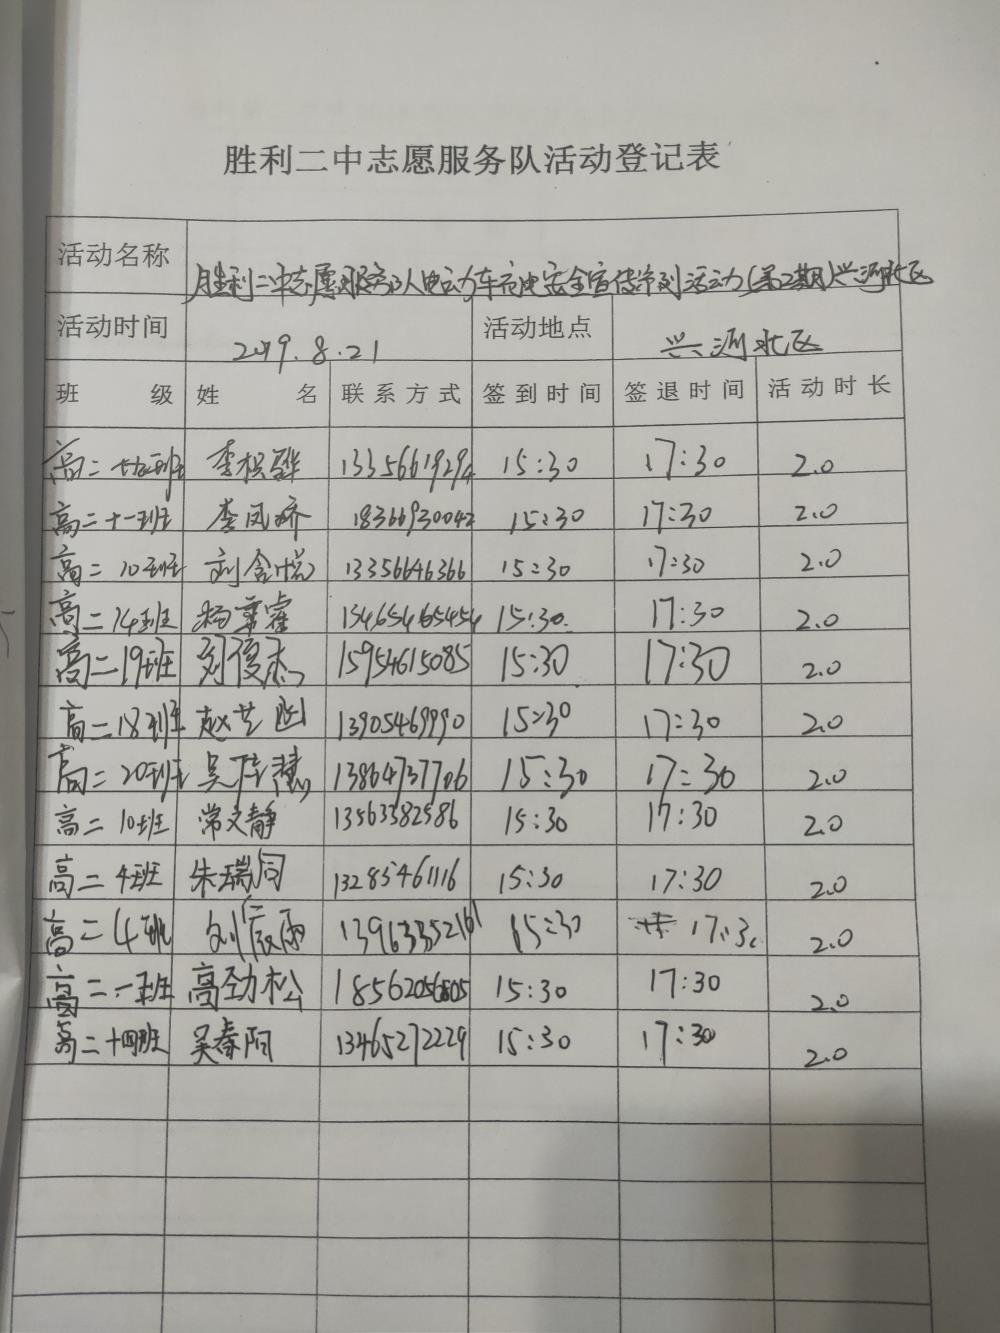 胜利二中志愿服务队活动登记表
活动名称 胜利二中志愿服务队电动车充电安全宣传系列活动(第2期)兴河北区
活动时间 2019.8.21 活动地点 兴河北区
班级 姓名 联系方式 签到时间 签退时间 活动时长
高二 班 李 骅 13356619294 15:30 17:30 2.0
高二十一班 李凤娇 18366930042 15:30 17:30 2.0
高二10班 刘含悦 13356646366 15:30 17:30 2.0
高二14班 杨 15:30 17:30 2.0
高二19班 刘俊杰 15954615085 15:30 17:30 2.0
高二18班 赵艺 13905469990 15:30 17:30 2.0
高二20班 吴佳慧 13864737706 15:30 17:30 2.0
高二10班 常文静 13563382586 15:30 17:30 2.0
高二4班 朱瑞同 13285461116 15:30 17:30 2.0
高二4班 刘宸雨 13963352161 15:30 17:30 2.0
高二一班 高劲松 15:30 17:30 2.0
高二十四班 吴春阳 13465272229 15:30 17:30 2.0